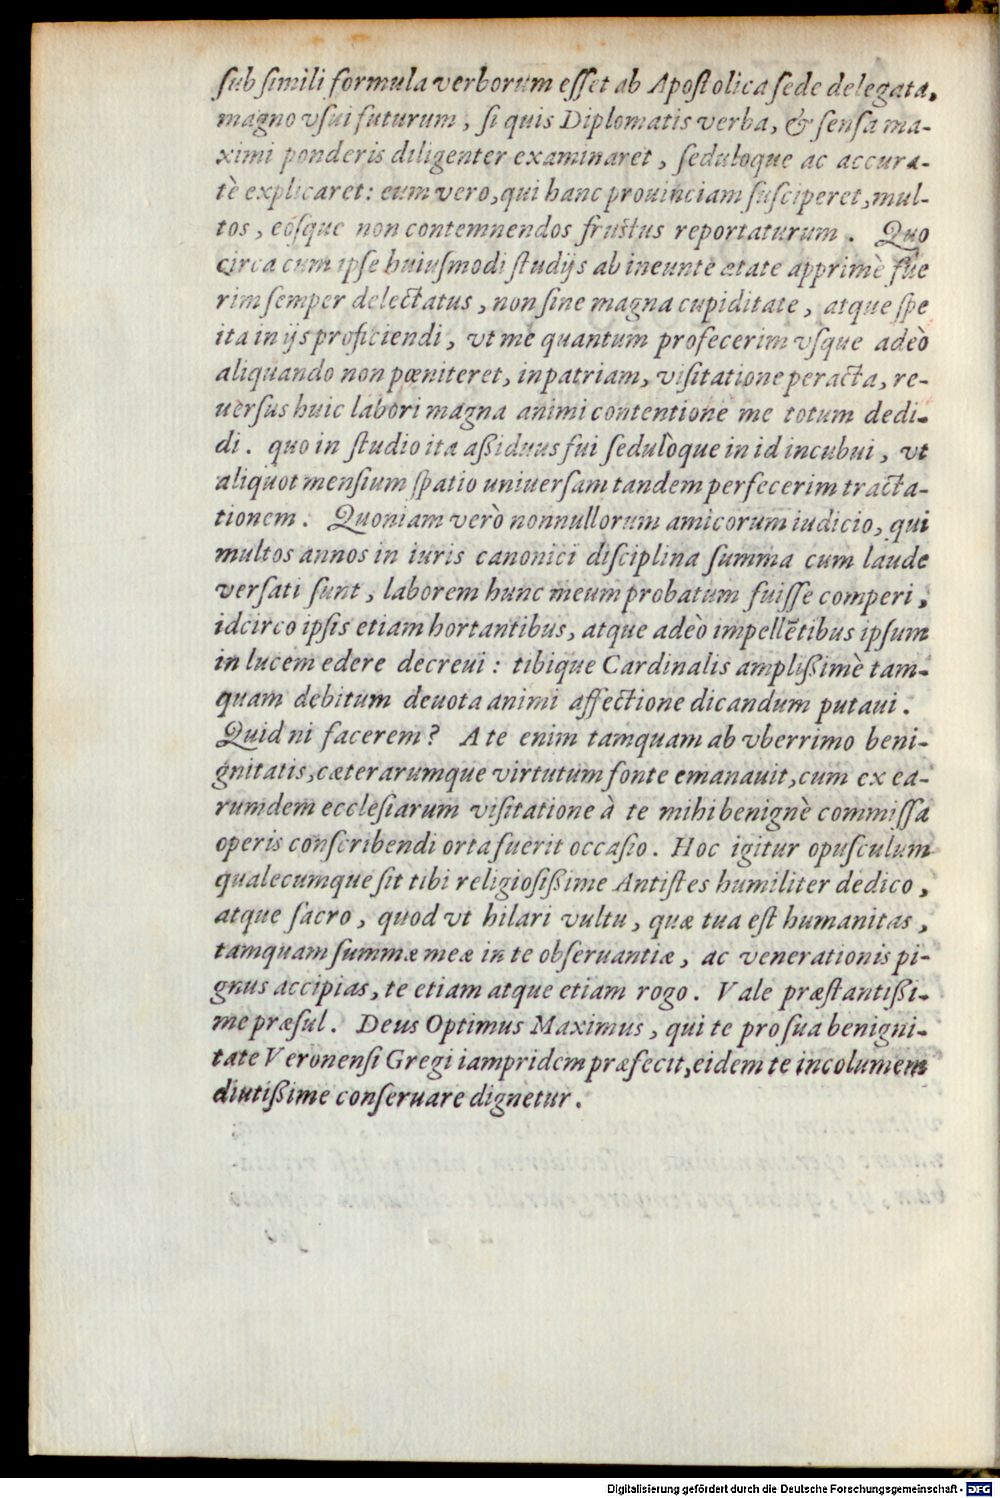 ſub ſimili formula verborum eſſet ab Apoſtolica ſede delegata,
magno vſui futurum, ſi quis Diplomatis verba, & ſenſa ma-
ximi ponderis diligenter examinaret, ſeduloque ac accura-
tè explicaret: eum vero, qui hanc prouinciam ſuſciperet, mul-
tos, eóſque non contemnendos fructus reportaturum. Quo
circa cum ipſe huiuſmodi ſtudijs ab ineunte ætate apprimè fue
rim ſemper delectatus, non ſine magna cupiditate, atque ſpe
ita in ijs proficiendi, vt me quantum profecerim vſque adeò
aliquando non pœniteret, in patriam, viſitatione peracta, re-
uerſus huic labori magna animi contentione me totum dedi-
di. quo in ſtudio ita aßiduus fui ſeduloque in id incubui, vt
aliquot menſium ſpatio uniuerſam tandem perfecerim tracta-
tionem. Quoniam verò nonnullorum amicorum iudicio, qui
multos annos in iuris canonici diſciplina ſumma cum laude
verſati ſunt, laborem hunc meum probatum fuiſſe comperi,
idcirco ipſis etiam hortantibus, atque adeò impellētibus ipſum
in lucem edere decreui: tibique Cardinalis amplißimè tam-
quam debitum deuota animi affectione dicandum putaui.
Quid ni facerem? A te enim tamquam ab vberrimo beni-
gnitatis, cæterarumque virtutum fonte emanauit, cum ex ea-
rumdem eccleſiarum viſitatione à te mihi benignè commiſſa
operis conſcribendi orta fuerit occaſio. Hoc igitur opuſculum
qualecumque ſit tibi religioſißime Antiſtes humiliter dedico,
atque ſacro, quod vt hilari vultu, quæ tua eſt humanitas,
tamquam ſummæ meæ in te obſeruantiæ, ac venerationis pi-
gnus accipias, te etiam atque etiam rogo. Vale præſtantißi-
me præſul. Deus Optimus Maximus, qui te pro ſua benigni-
tate Veronenſi Gregi iampridem præfecit, eidem te incolumem
diutißime conſeruare dignetur.
Digitalisierung gefördert durch die Deutsche Forschungsgemeinschaft - DFG